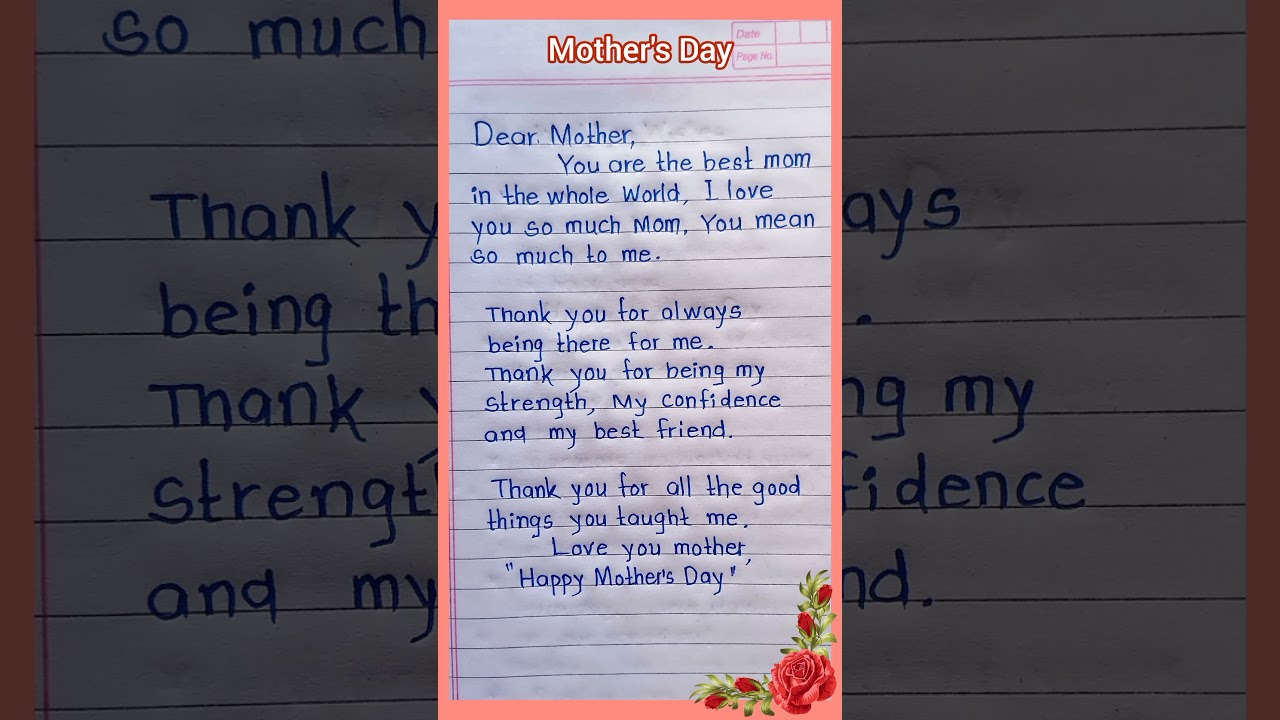 Mother's Day
Date
Page No.
Dear Mother,
You are the best mom
in the whole World, I love
you so much Mom, You mean
so much to me.
Thank you for always
being there for me.
Thank you for being my
strength, My confidence
and my best friend.
Thank you for all the good
things you taught me.
Love you mother,
"Happy Mother's Day"
so much
Thank y
ays
being th
.
Thank
ng my
strengt
fidence
and my
nd.